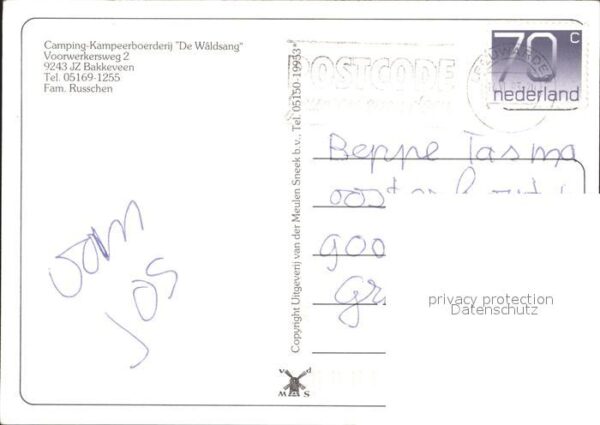 Camping-Kampeerboerderij "De Wâldsang"
Voorwerkersweg 2
9243 JZ Bakkeveen
Tel. 05169-1255
Fam. Russchen
POSTCODE
70 c
nederland
Copyright Uitgeverij van der Meulen Sneek b.v., Tel. 05150-19953*
Beppe Tasma
van
Jos
privacy protection
Datenschutz
v d
M S